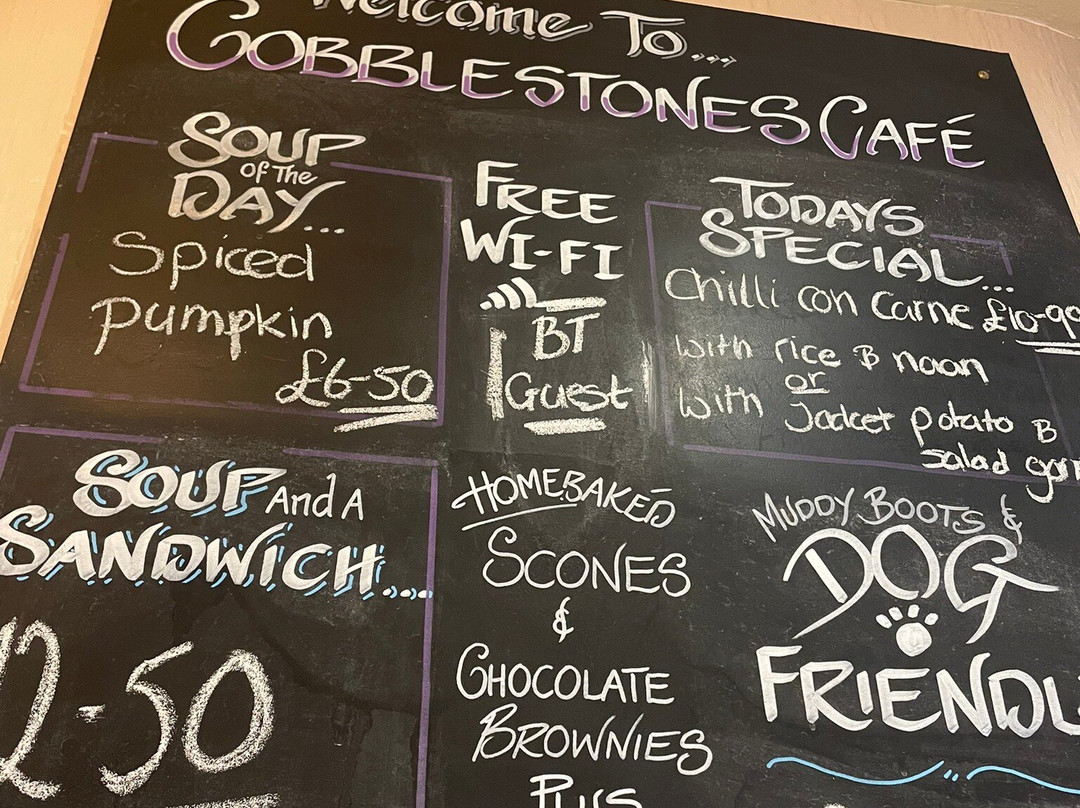 Welcome To...
COBBLESTONES CAFÉ
SOUP
OF THE
DAY...
Spiced
Pumpkin
£6-50
FREE
WI-FI
BT
Guest
TODAYS
SPECIAL...
Chilli con Carne £10-90
with rice & naan
or
with Jacket potato &
salad
SOUP And A
SANDWICH...
2-50
HOMEBAKED
SCONES
&
CHOCOLATE
BROWNIES
PLUS
MUDDY BOOTS &
DOG
FRIENDL